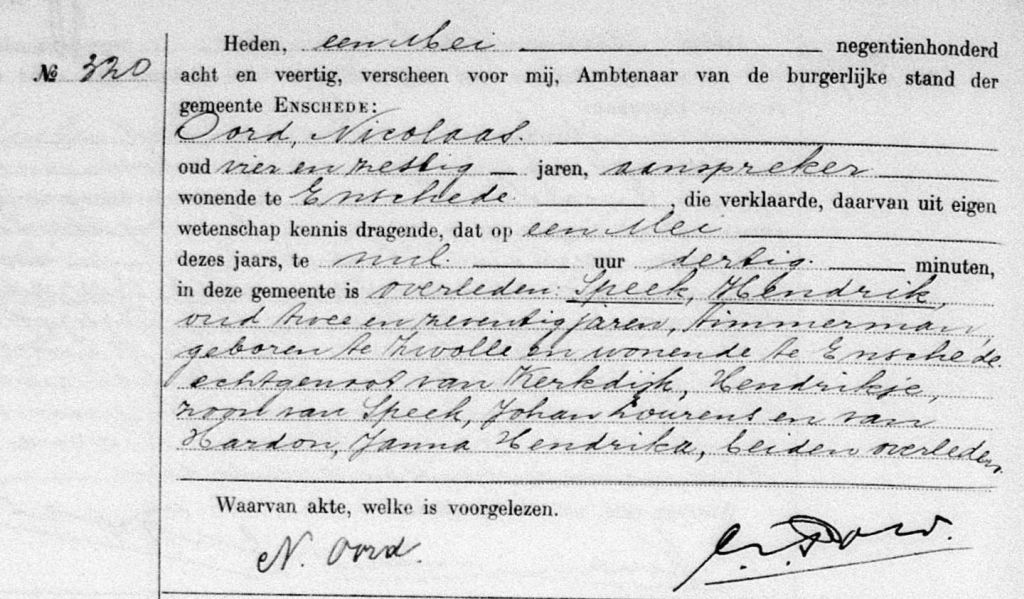 Heden, een Mei negentienhonderd
№ 320
acht en veertig, verscheen voor mij, Ambtenaar van de burgerlijke stand der
gemeente ENSCHEDE:
Oord, Nicolaas.
oud vier en zestig jaren, aanspreker
wonende te Enschede, die verklaarde, daarvan uit eigen
wetenschap kennis dragende, dat op een Mei
dezes jaars, te nul uur dertig minuten,
in deze gemeente is overleden: Speek, Hendrik,
oud twee en zeventig jaren, timmerman,
geboren te Zwolle en wonende te Enschede
echtgenoot van Kerkdijk, Hendrikje,
zoon van Speek, Johan Lourens en van
Hardon, Janna Hendrika, beiden overleden.
Waarvan akte, welke is voorgelezen.
N. Oord.